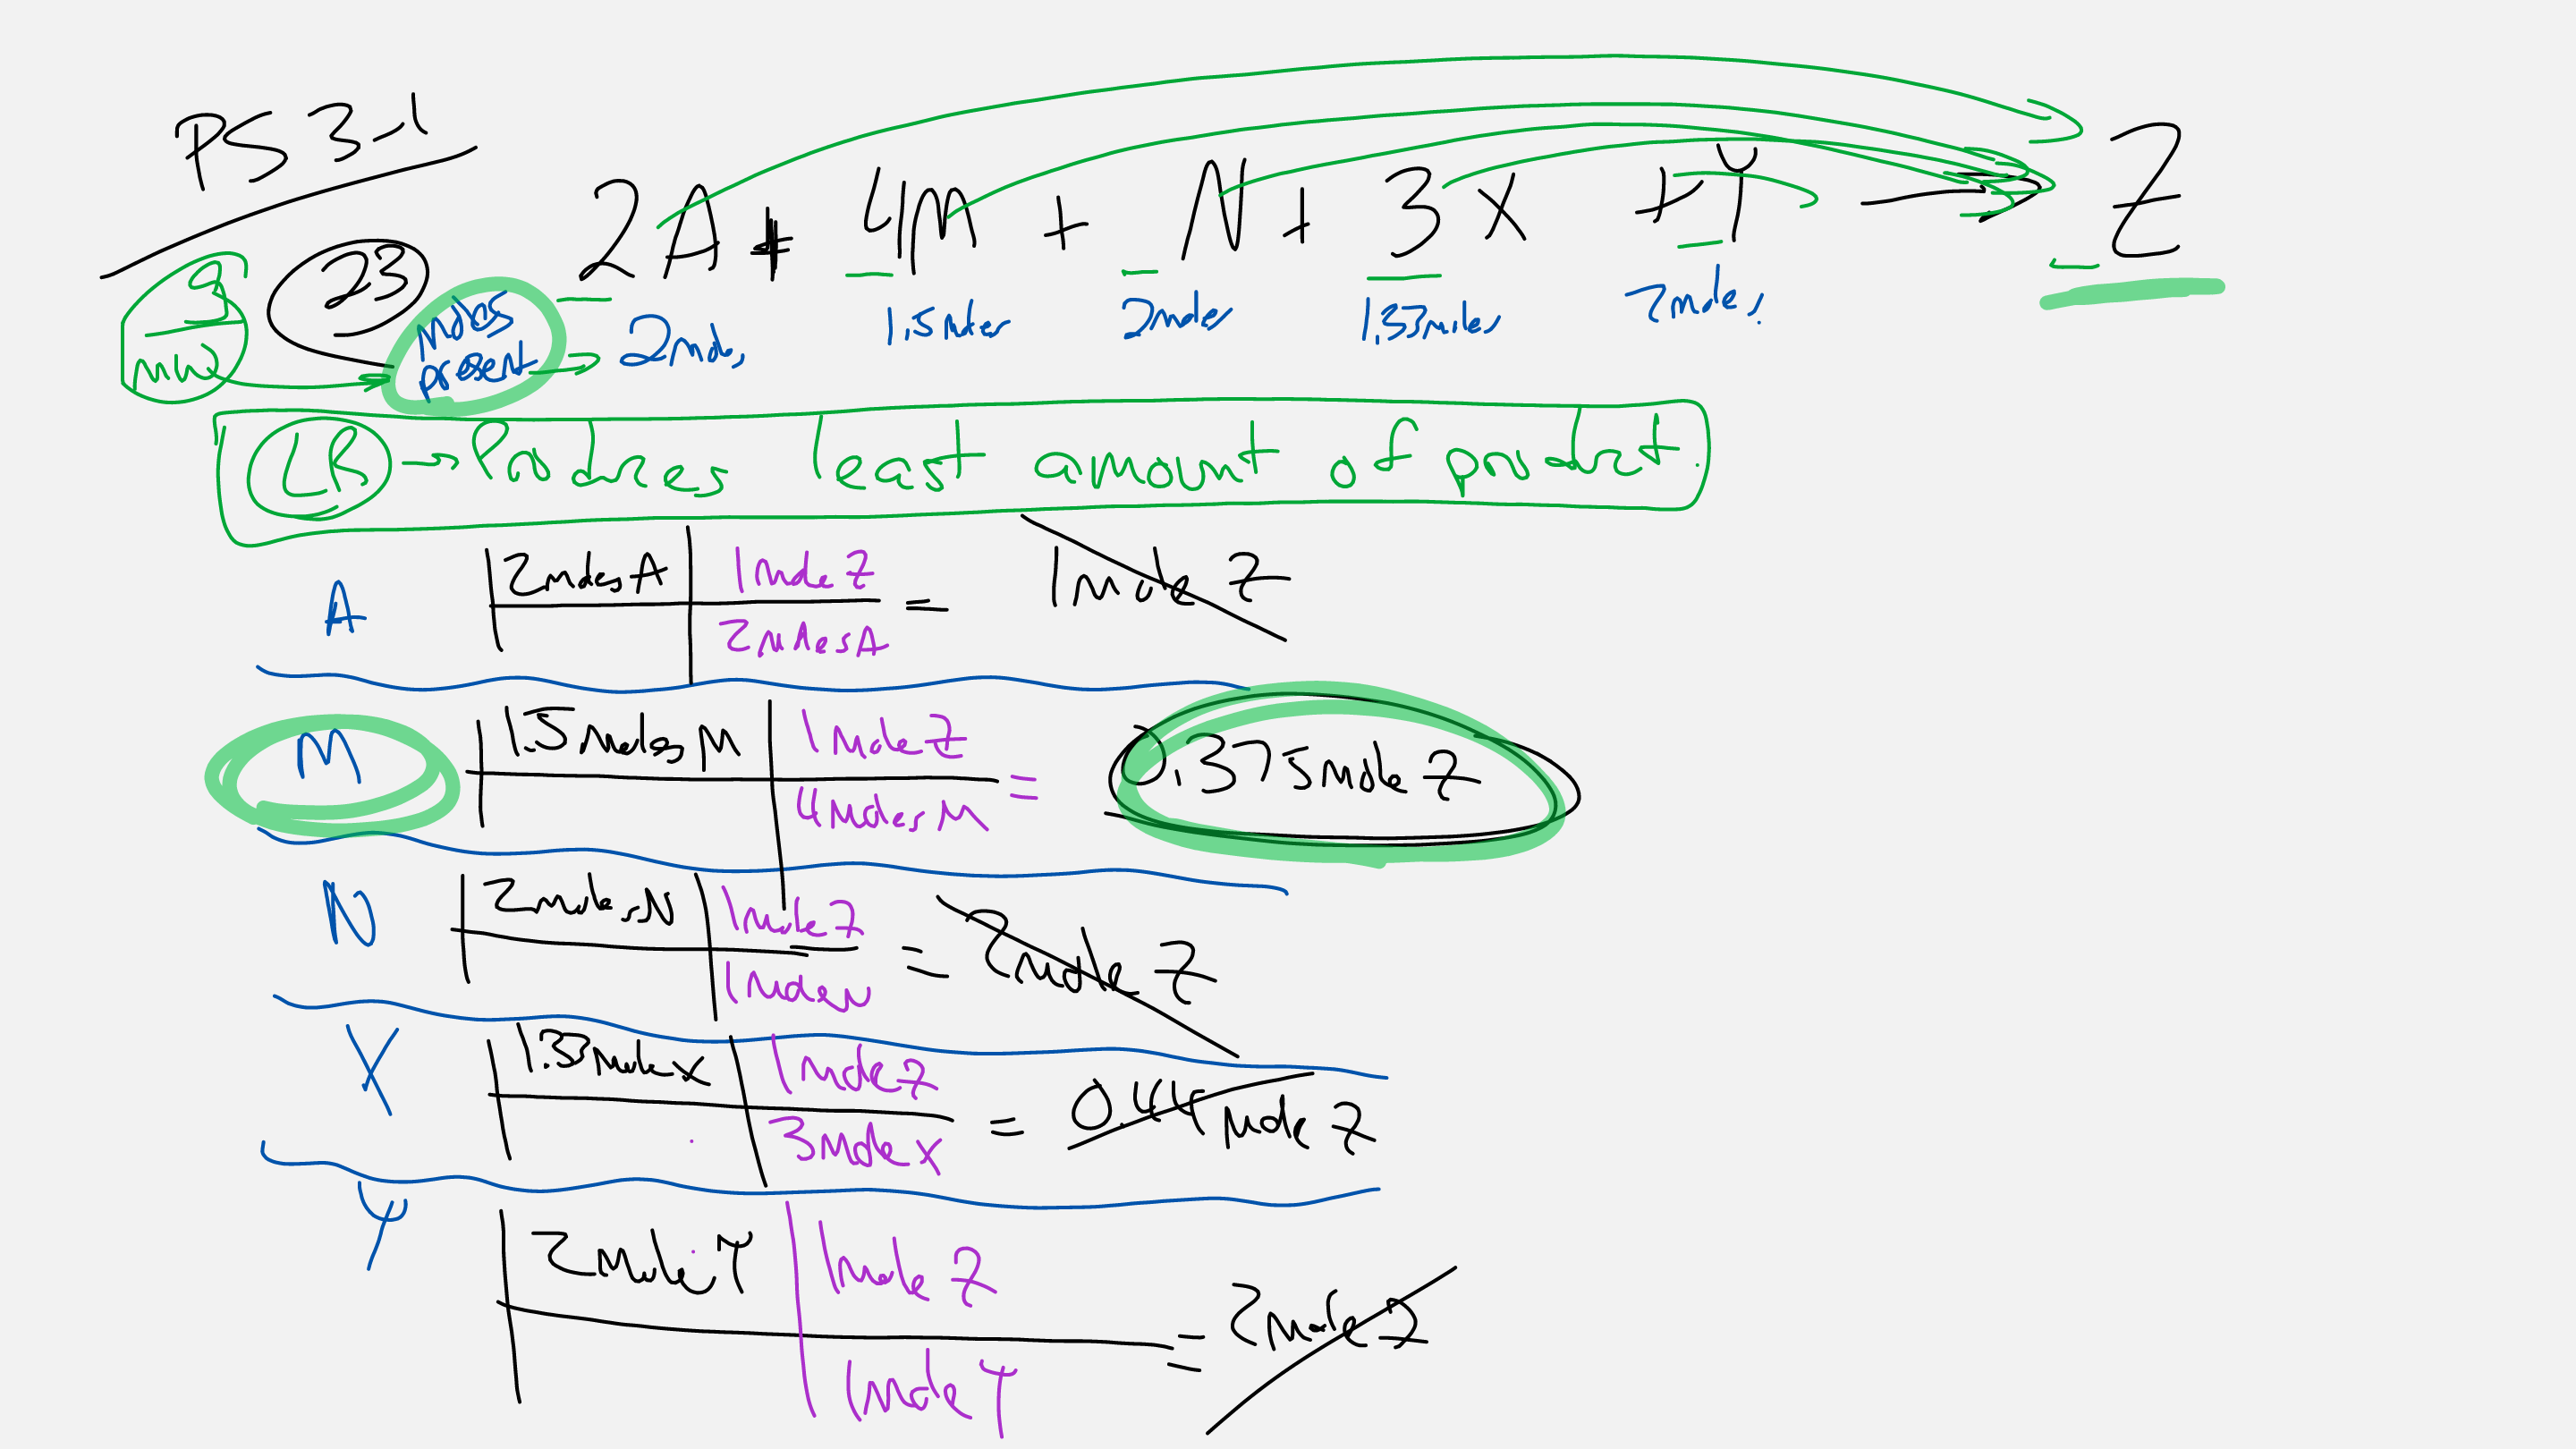 PS 3-1
2A + 4M + N + 3X + Y → Z
23
g
mw
moles
present
2 moles 1.5 moles 2 moles 1.33 moles 2 moles.
LR → Produces least amount of product.
A 2 moles A 1 mole Z = 1 mole Z
2 moles A
M 1.5 moles M 1 mole Z = 0.375 mole Z
4 moles M
N 2 moles N 1 mole Z = 2 mole Z
1 mole N
X 1.33 mole X 1 mole Z = 0.44 mole Z
3 mole X
Y 2 mole Y 1 mole Z = 2 mole Z
1 mole Y